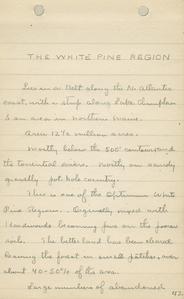 THE WHITE PINE REGION
Lies in a Belt along the No. Atlantic
coast, with a strip along Lake Champlain
& an area in northern Maine.
Area 12½ million acres.
Mostly below the 500' contour and
the torrential rivers. Mostly on sandy
gravelly pot hole country.
This is one of the Optimum White
Pine Regions. Originally mixed with
Hardwoods becoming pure on the poorer
soils. The better land has been cleared
leaving the forest in small patches, over
about 40-50% of the area.
Large numbers of abandoned